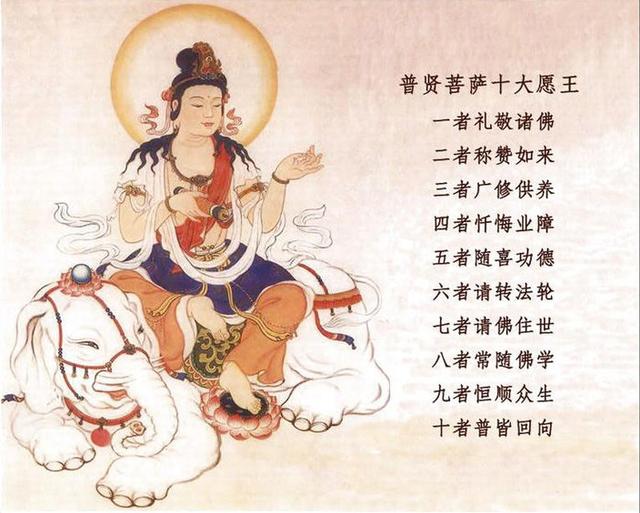 普贤菩萨十大愿王
一者礼敬诸佛
二者称赞如来
三者广修供养
四者忏悔业障
五者随喜功德
六者请转法轮
七者请佛住世
八者常随佛学
九者恒顺众生
十者普皆回向